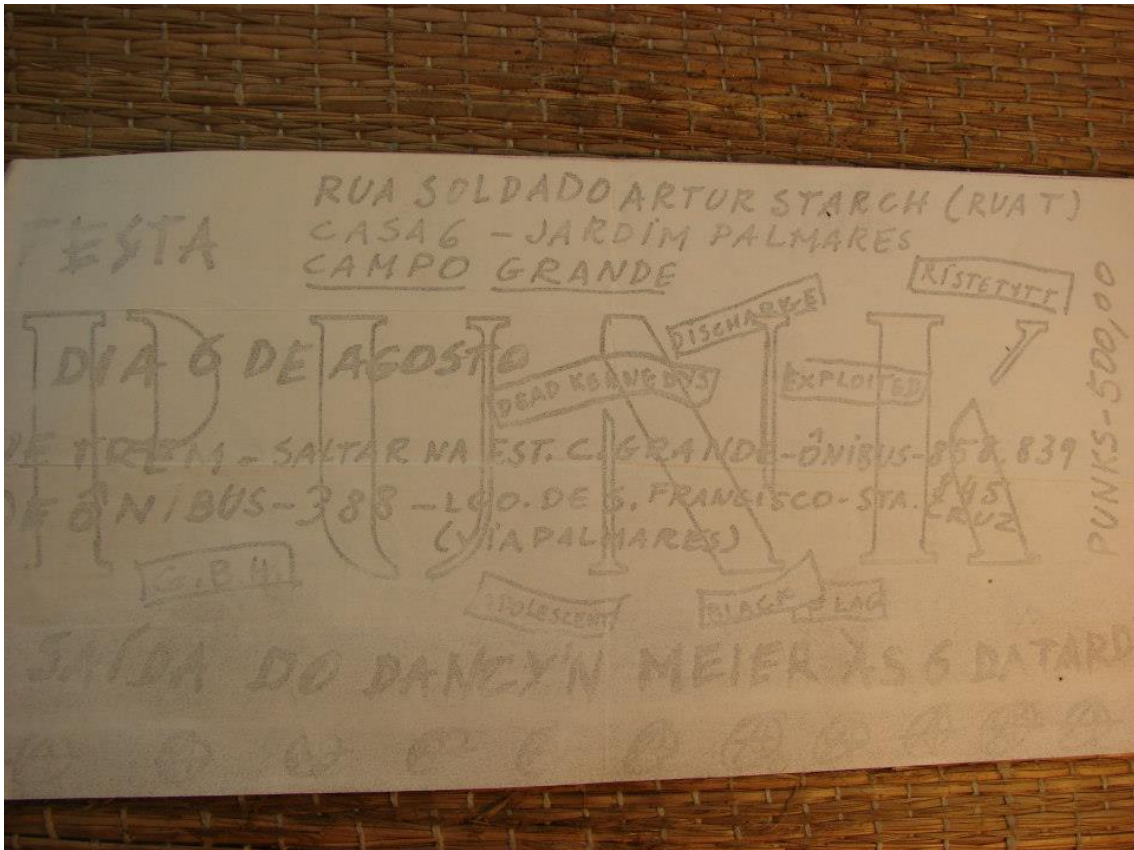 FESTA
RUA SOLDADO ARTUR STARCH (RUA T)
CASA 6 - JARDIM PALMARES
CAMPO GRANDE
RISTETYTT
DISCHARGE
PUNK
DIA 6 DE AGOSTO
DEAD KENNEDYS
EXPLOITED
PUNKS-500,00
DE TREM - SALTAR NA EST. C. GRANDE - ÔNIBUS - 858, 839
DE ÔNIBUS - 388 - LGO. DE S. FRANCISCO - STA. CRUZ
(VIA PALMARES)
G.B.H.
ADOLESCENT
BLACK FLAG
SAÍDA DO DANCY'N MEIER ÀS 6 DA TARD